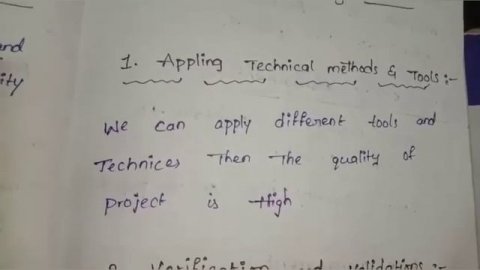 and
ity
1. Appling Technical methods & Tools:-
We can apply different tools and
Technices Then The quality of
project is High
2. Verification and validations:-